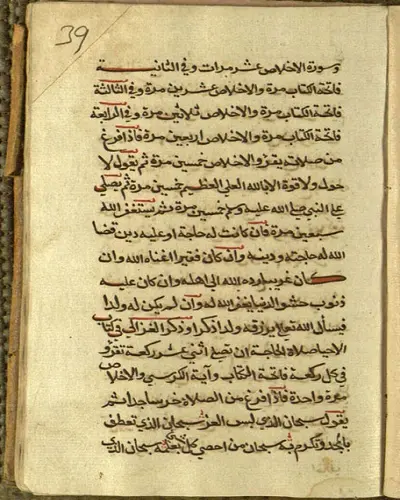 39
وسورة الاخلاص عشر مرات وفي الثانية
فاتحة الكتاب مرة والاخلاص عشرين مرة وفي الثالثة
فاتحة الكتاب مرة والاخلاص ثلاثين مرة وفي الرابعة
فاتحة الكتاب مرة والاخلاص اربعين مرة فاذا فرغ
من صلاته يقرؤ الاخلاص خمسين مرة ثم يقول لا
حول ولا قوة الا بالله العلي العظيم خمسين مرة ثم يصلي
على النبي صلى الله عليه وسلم خمسين مرة ثم يستغفر الله
سبعين مرة فان كانت له حاجة او عليه دين قضا
الله له حاجته ودينه وان كان فقيرا اغناه الله وان
كان غريبا رده الله الى اهله وان كان عليه
ذنوب حشو الدنيا يغفر الله له وان لم يكن له ولدا
فيسأل الله تعالى يرزقه ولدا ذكرا وذكر الغزالي في كتاب
الاحيا صلاة الحاجة ان تصلي اثني عشر ركعة تقرؤ
في كل ركعة فاتحة الكتاب وآية الكرسي والاخلاص
مرة واحدة فاذا فرغ من الصلاة خر ساجدا ثم
يقول سبحان الذي لبس العز سبحان الذي تعطف
بالمجد وتكرم به سبحان من احصى كل شي بعلمه سبحان الذي